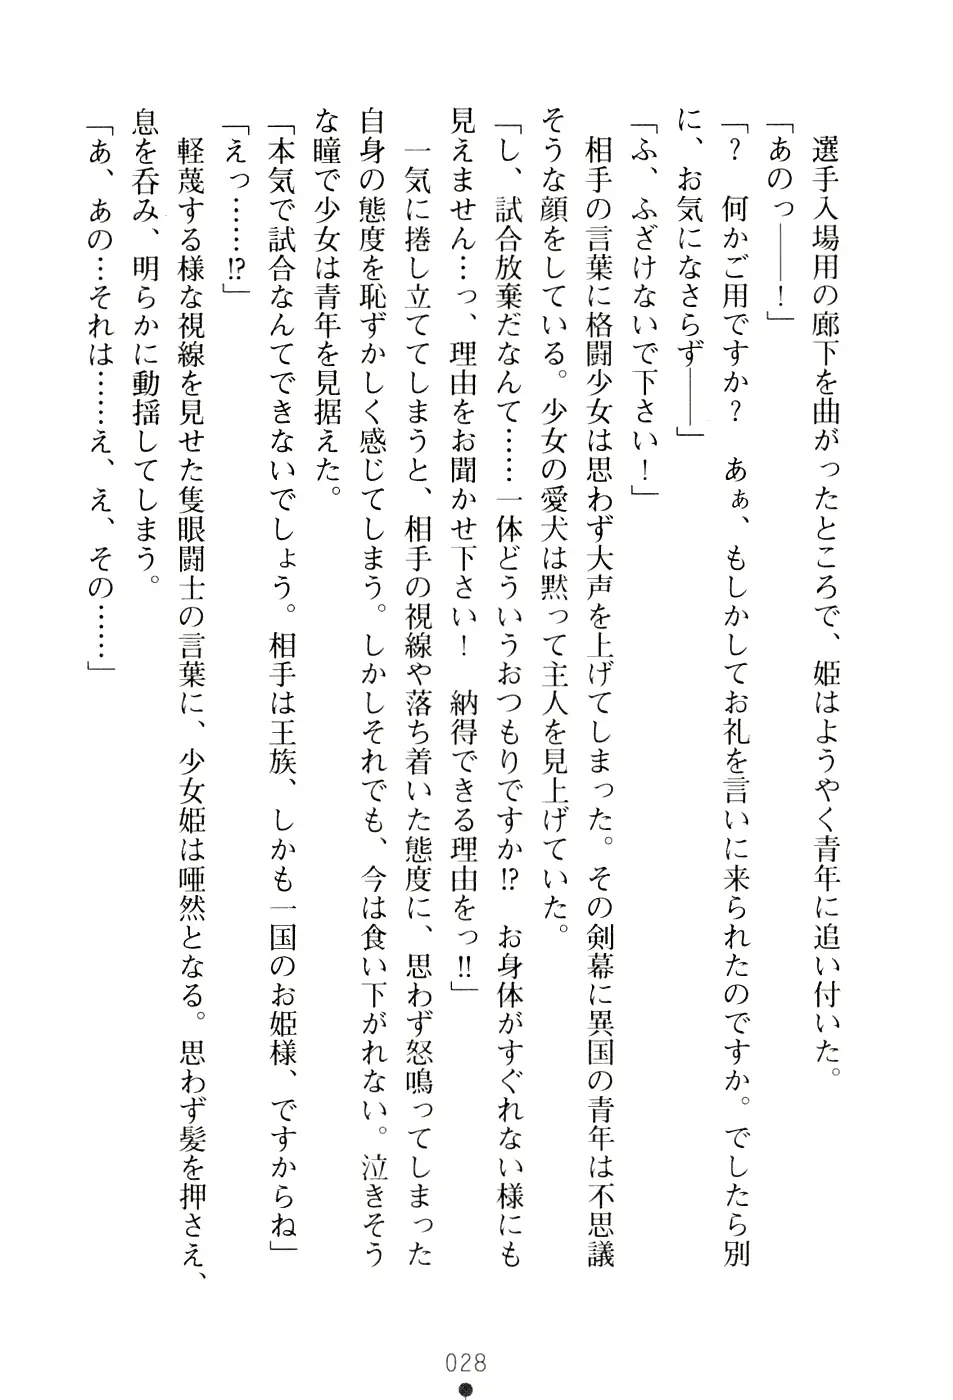 選手入場用の廊下を曲がったところで、姫はようやく青年に追い付いた。
「あのっ――！」
「？　何かご用ですか？　あぁ、もしかしてお礼を言いに来られたのですか。でしたら別
に、お気になさらず――」
「ふ、ふざけないで下さい！」
相手の言葉に格闘少女は思わず大声を上げてしまった。その剣幕に異国の青年は不思議
そうな顔をしている。少女の愛犬は黙って主人を見上げていた。
「し、試合放棄だなんて……一体どういうおつもりですか!?　お身体がすぐれない様にも
見えません…っ、理由をお聞かせ下さい！　納得できる理由をっ!!」
一気に捲し立ててしまうと、相手の視線や落ち着いた態度に、思わず怒鳴ってしまった
自身の態度を恥ずかしく感じてしまう。しかしそれでも、今は食い下がれない。泣きそう
な瞳で少女は青年を見据えた。
「本気で試合なんてできないでしょう。相手は王族、しかも一国のお姫様、ですからね」
「えっ……!?」
軽蔑する様な視線を見せた隻眼闘士の言葉に、少女姫は唖然となる。思わず髪を押さえ、
息を呑み、明らかに動揺してしまう。
「あ、あの…それは……え、え、その……」
028